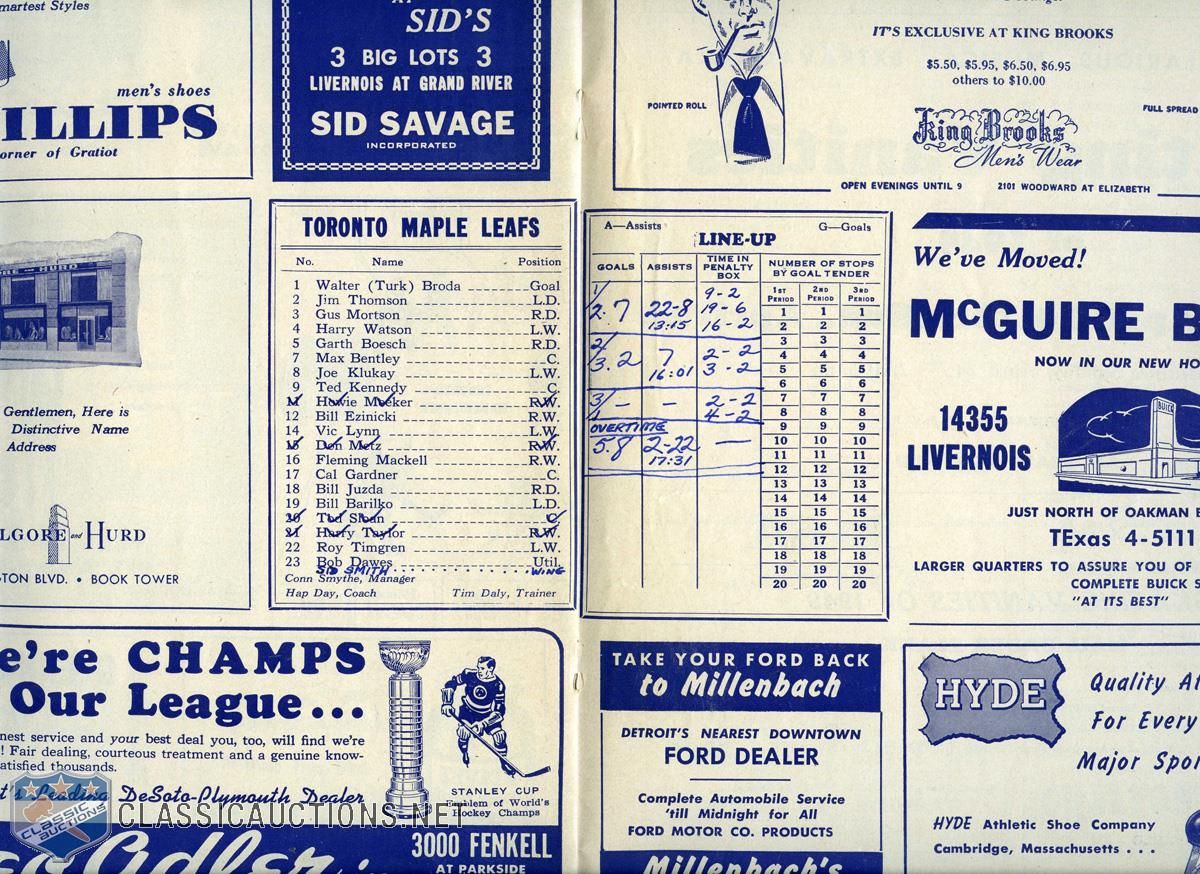 martest Styles
men's shoes
ILLIPS
orner of Gratiot
AT
SID'S
3 BIG LOTS 3
LIVERNOIS AT GRAND RIVER
SID SAVAGE
INCORPORATED
IT'S EXCLUSIVE AT KING BROOKS
$5.50, $5.95, $6.50, $6.95
others to $10.00
POINTED ROLL
FULL SPREAD
King Brooks
Men's Wear
OPEN EVENINGS UNTIL 9 2101 WOODWARD AT ELIZABETH
RE AND HURD
Gentlemen, Here is
Distinctive Name
Address
LGORE and HURD
TON BLVD. • BOOK TOWER
TORONTO MAPLE LEAFS
No. Name Position
1 Walter (Turk) Broda Goal
2 Jim Thomson L.D.
3 Gus Mortson R.D.
4 Harry Watson L.W.
5 Garth Boesch R.D.
7 Max Bentley C.
8 Joe Klukay L.W.
9 Ted Kennedy C
11 Howie Meeker R.W.
12 Bill Ezinicki R.W.
14 Vic Lynn L.W.
15 Don Metz R.W.
16 Fleming Mackell R.W.
17 Cal Gardner C.
18 Bill Juzda R.D.
19 Bill Barilko L.D.
20 Tod Sloan C.
21 Harry Taylor R.W.
22 Roy Timgren L.W.
23 Bob Dawes Util.
SID SMITH WING
Conn Smythe, Manager
Hap Day, Coach Tim Daly, Trainer
A—Assists G—Goals
LINE-UP
GOALS ASSISTS TIME IN PENALTY BOX NUMBER OF STOPS BY GOAL TENDER
1ST PERIOD 2ND PERIOD 3RD PERIOD
1/ 9-2
2.7 22-8 19-6
13:15 16-2
2/
3.2 7 2-2
16:01 3-2
3/ - - 2-2
1 4-2
OVERTIME
5.8 2-22 —
17:31
1 1 1
2 2 2
3 3 3
4 4 4
5 5 5
6 6 6
7 7 7
8 8 8
9 9 9
10 10 10
11 11 11
12 12 12
13 13 13
14 14 14
15 15 15
16 16 16
17 17 17
18 18 18
19 19 19
20 20 20
We've Moved!
McGUIRE B
NOW IN OUR NEW HO
14355
LIVERNOIS
BUICK
JUST NORTH OF OAKMAN B
TExas 4-5111
LARGER QUARTERS TO ASSURE YOU OF
COMPLETE BUICK S
"AT ITS BEST"
e're CHAMPS
Our League...
nest service and your best deal you, too, will find we're
! Fair dealing, courteous treatment and a genuine know-
atisfied thousands.
t's Leading DeSoto-Plymouth Dealer
STANLEY CUP
Emblem of World's
Hockey Champs
3000 FENKELL
AT PARKSIDE
Adler
CLASSIC AUCTIONS
CLASSICAUCTIONS.NET
TAKE YOUR FORD BACK
to Millenbach
DETROIT'S NEAREST DOWNTOWN
FORD DEALER
Complete Automobile Service
'till Midnight for All
FORD MOTOR CO. PRODUCTS
Millenbach's
HYDE
Quality At
For Every
Major Spor
HYDE Athletic Shoe Company
Cambridge, Massachusetts . . .